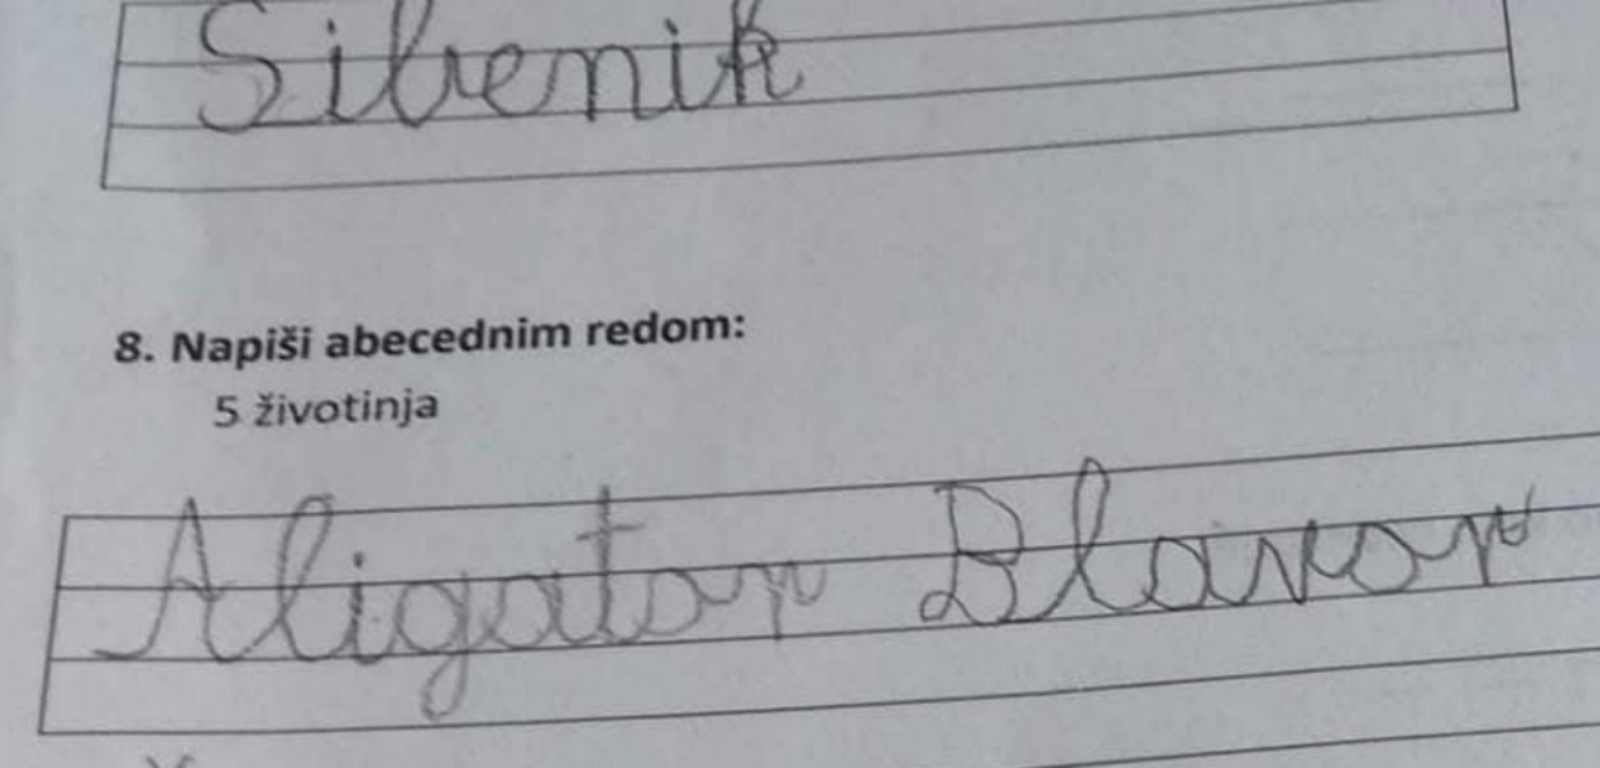 Sibenik
8. Napiši abecednim redom:
5 životinja
Aligator Blavor